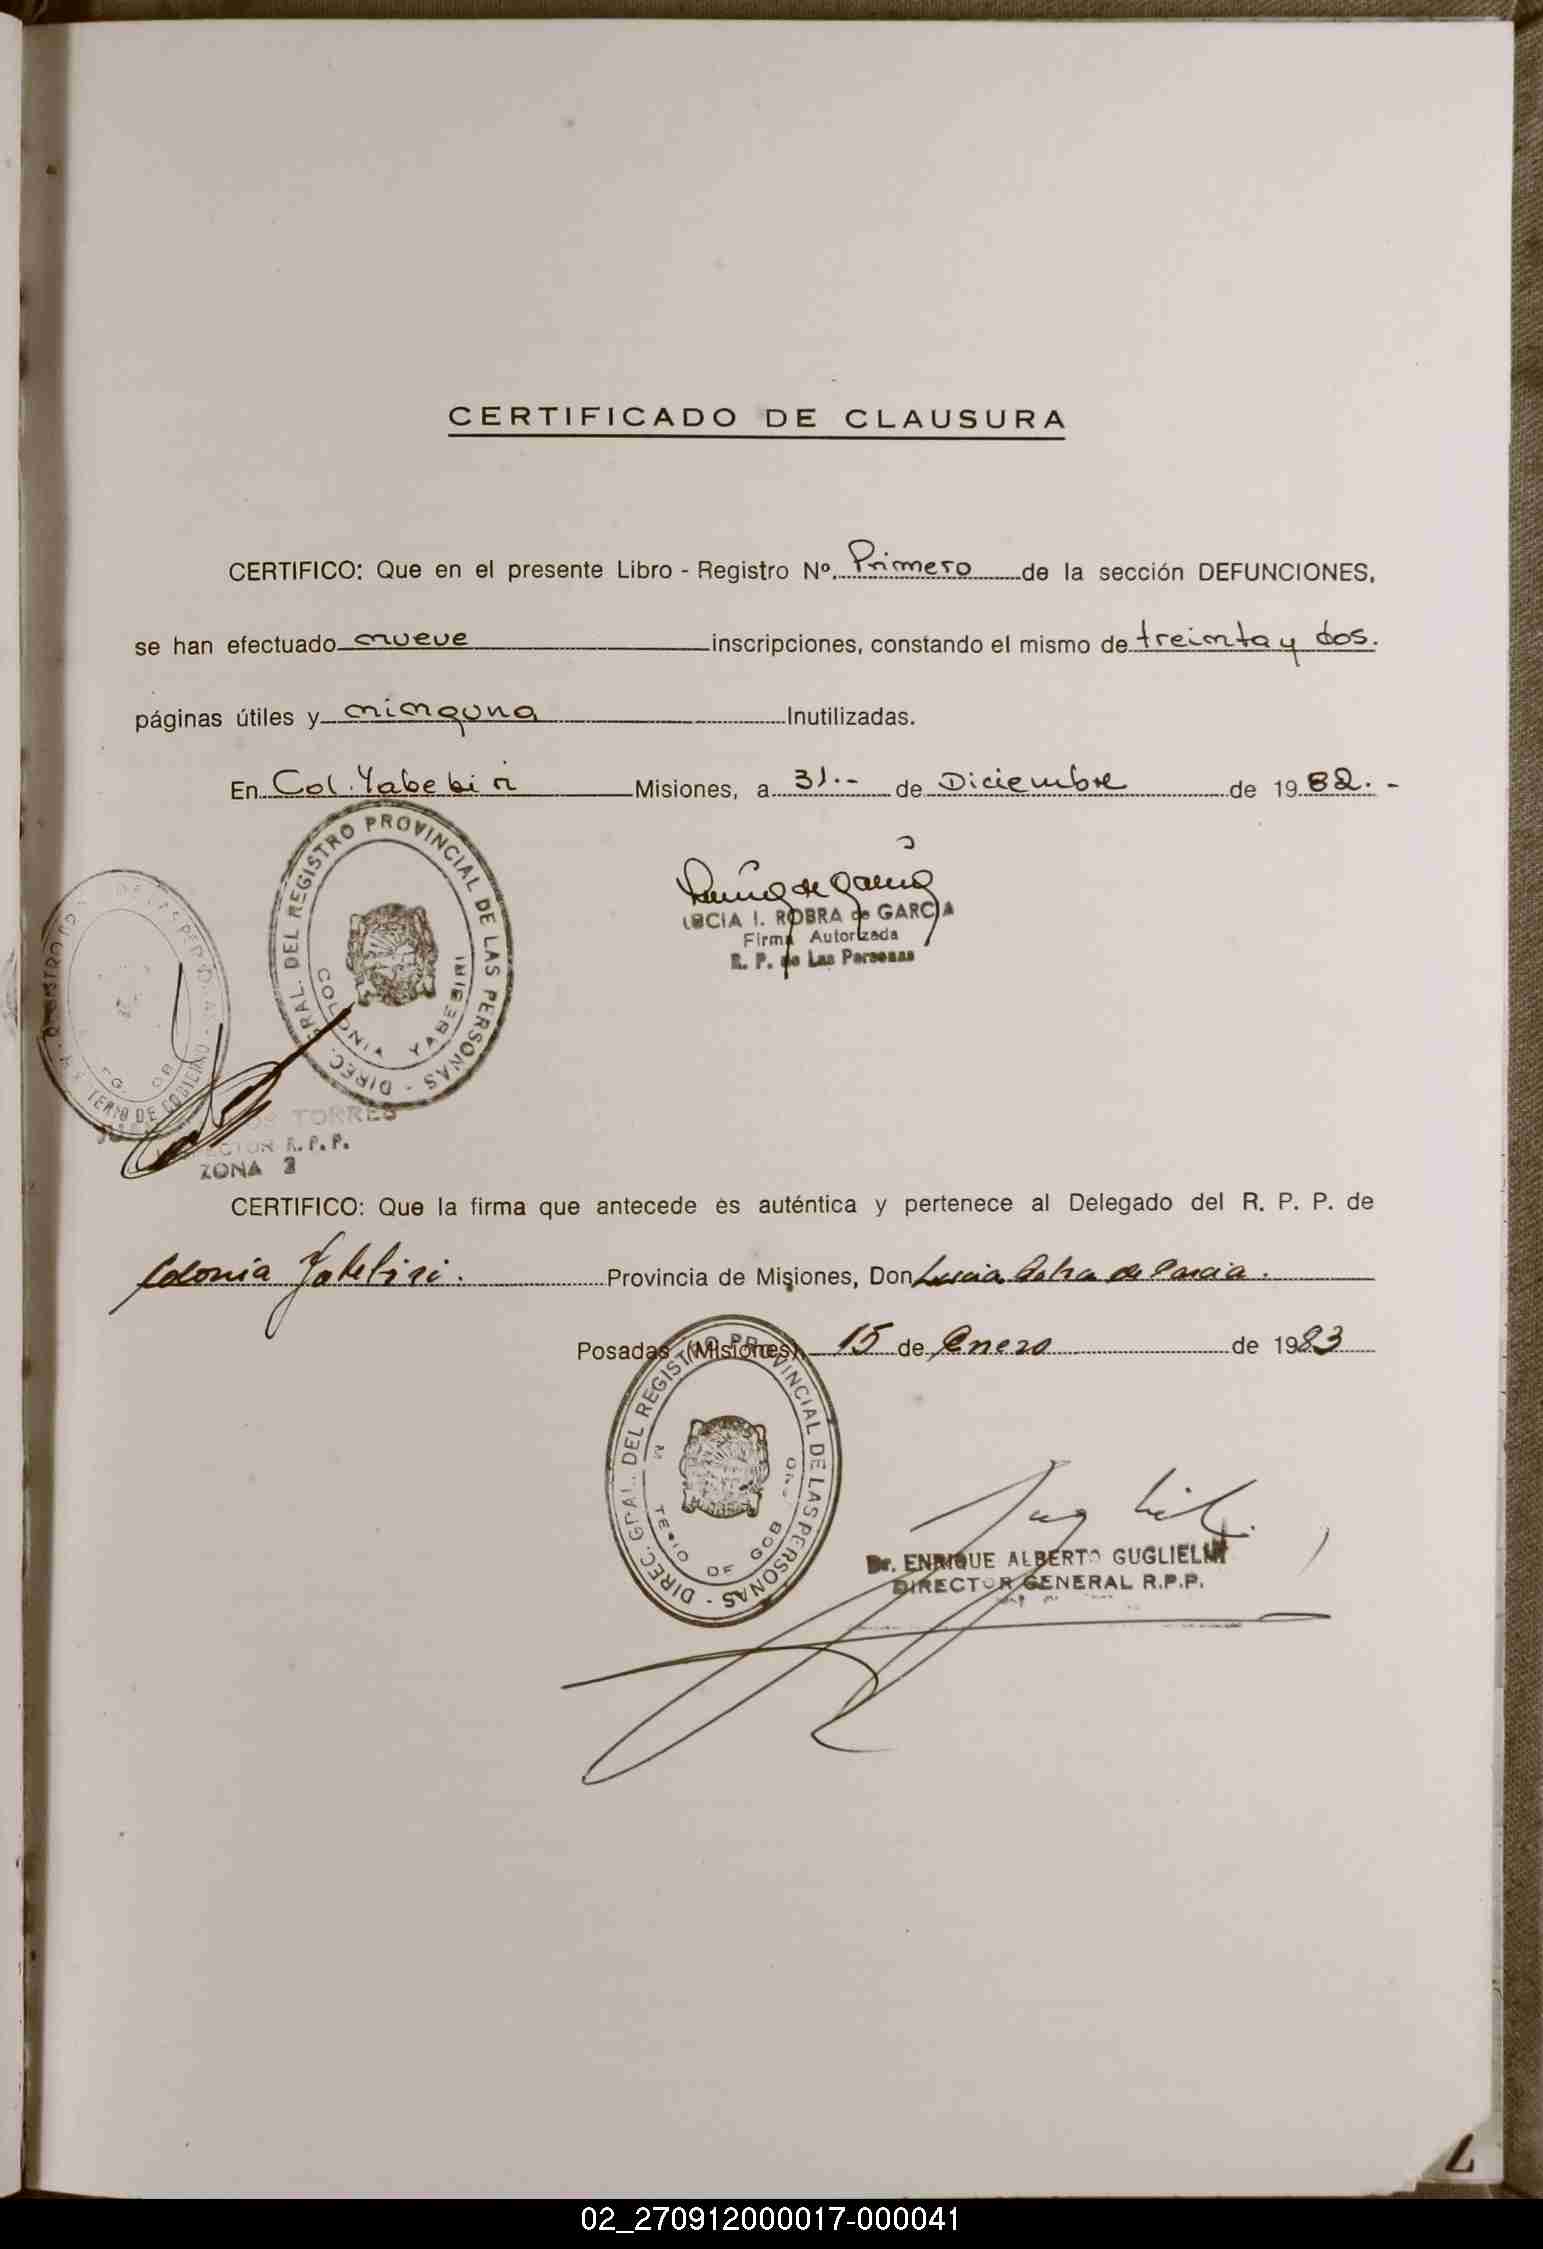 CERTIFICADO DE CLAUSURA
CERTIFICO: Que en el presente Libro - Registro Nº. Primero de la sección DEFUNCIONES,
se han efectuado nueve inscripciones, constando el mismo de treinta y dos.
páginas útiles y ninguna Inutilizadas.
En Col. Yabebiri Misiones, a 31.- de Diciembre de 1982.-
DIREC. GRAL. DEL REGISTRO PROVINCIAL DE LAS PERSONAS
COLONIA YABEBIRI
LUCIA I. ROBRA de GARCIA
Firma Autorizada
R. P. de Las Personas
TORRES
R. P. P.
ZONA 2
CERTIFICO: Que la firma que antecede es auténtica y pertenece al Delegado del R. P. P. de
Colonia Yabebiri. Provincia de Misiones, Don Lucia Robra de Garcia.
Posadas (Misiones) 15 de Enero de 1983
DIREC. GRAL. DEL REGISTRO PROVINCIAL DE LAS PERSONAS
Dr. ENRIQUE ALBERTO GUGLIELMI
DIRECTOR GENERAL R.P.P.
02_270912000017-000041